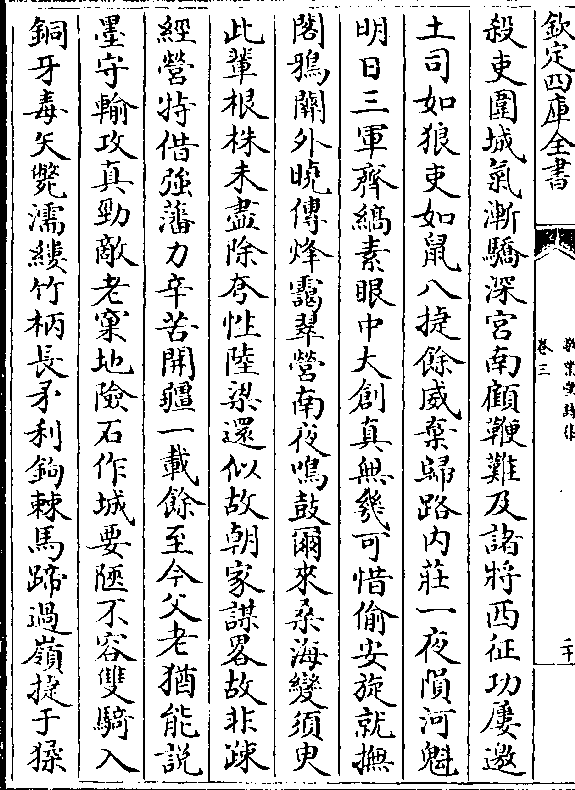 欽定四庫全書
卷三
二十
殺吏圍城氣漸驕深宮南顧鞭難及諸將西征功屢邀
土司如狼吏如鼠八捷餘威棄歸路内莊一夜隕河魁
明日三軍齊縞素眼中大創真無幾可惜偷安旋就撫
閣鴉關外曉傳烽靄翠營南夜鳴鼓爾來桑海變須臾
此輩根株未盡除夸性陸梁還似故朝家謀畧故非疎
經營特借強藩力辛苦開疆一載餘至今父老猶能説
墨守輸攻真勁敵老窠地險石作城要陿不容雙騎入
銅牙毒矢斃濡縷竹柄長矛利鉤棘馬蹄過嶺捷于猱